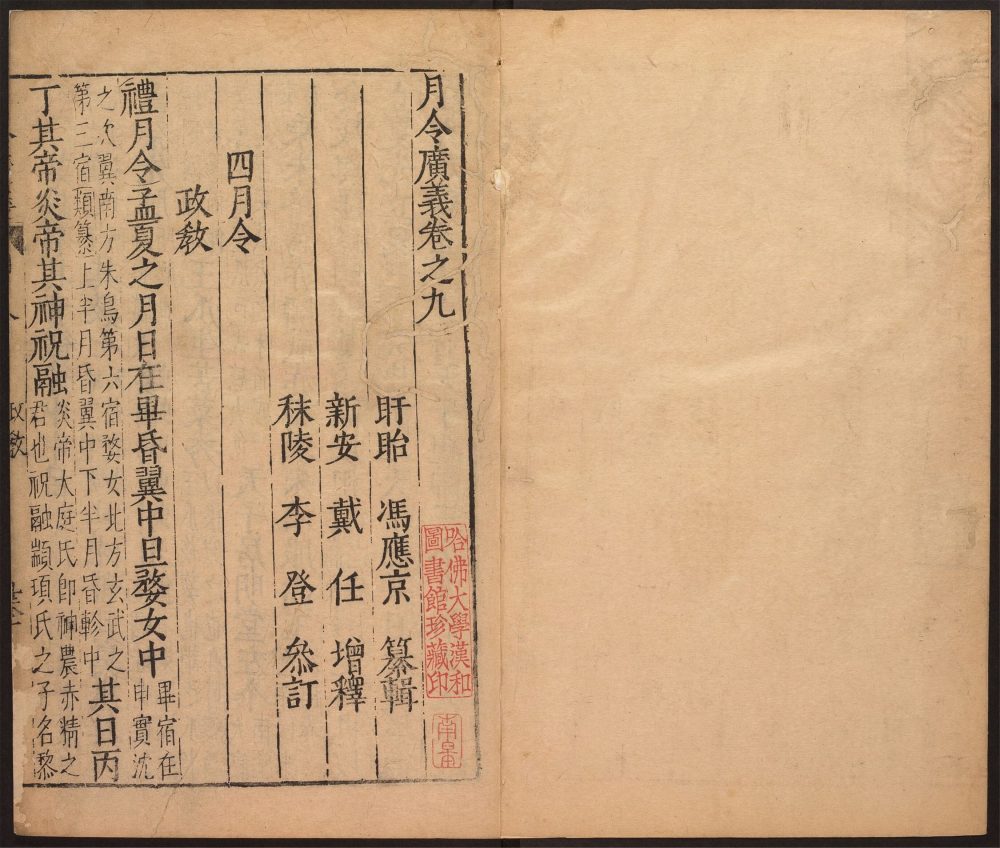 月令廣義卷之九
盱眙 馮應京 纂輯
新安 戴任 增釋
秣陵 李登 叅訂
四月令
政教
禮月令孟夏之月日在畢昏翼中旦婺女中畢宿在
申實沈
之次翼南方朱鳥第六宿婺女北方玄武之
第三宿類纂上半月昏翼中下半月昏軫中其日丙
丁其帝炎帝其神祝融炎帝大庭氏即神農赤精之
君也祝融顓頊氏之子名黎
政教
哈佛大學漢和
圖書館珍藏印